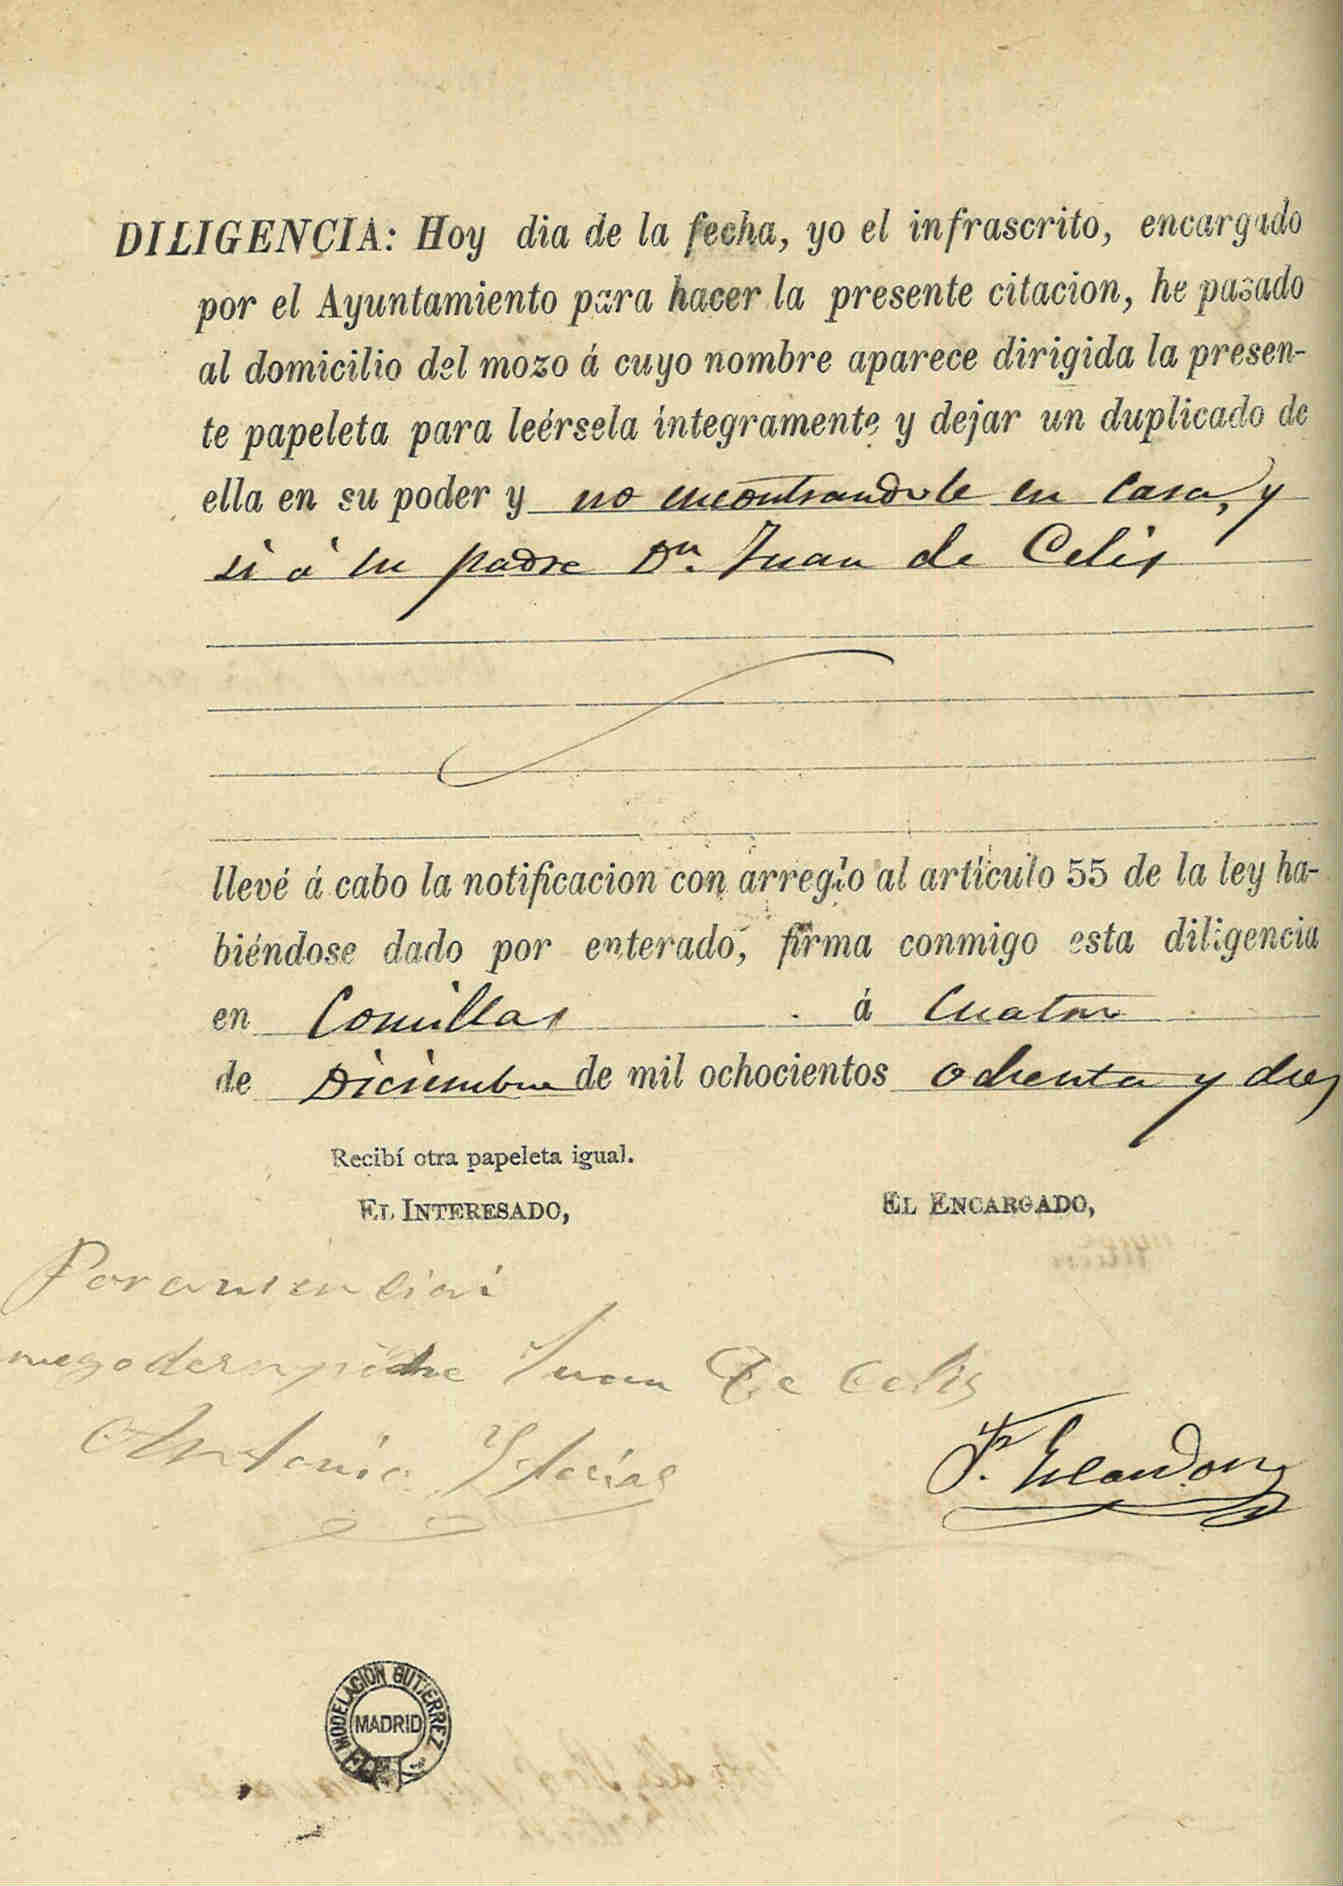 DILIGENCIA: Hoy dia de la fecha, yo el infrascrito, encargado
por el Ayuntamiento para hacer la presente citacion, he pasado
al domicilio del mozo á cuyo nombre aparece dirigida la presen-
te papeleta para leérsela íntegramente y dejar un duplicado de
ella en su poder y no encontrandole en casa, y
si á su padre Dn. Juan de Celis
llevé á cabo la notificacion con arreglo al artículo 55 de la ley ha-
biéndose dado por enterado, firma conmigo esta diligencia
en Comillas á Cuatro
de Diciembre de mil ochocientos ochenta y dos
Recibí otra papeleta igual.
EL INTERESADO,
EL ENCARGADO,
Por
padre Juan De Celis
Antonio
F.
MODELACIÓN GUTIERREZ
MADRID